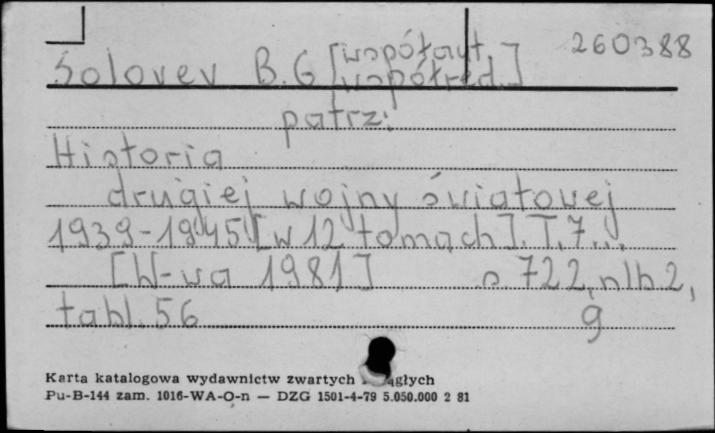 Solovev B.G [współaut. współred.] 260388
patrz:
Historia
drugiej wojny światowej
1939-1945 [w 12 tomach]. T. 7...
[W-wa 1981] s. 722, nlb 2,
tabl. 56 g
Karta katalogowa wydawnictw zwartych ągłych
Pu-B-144 zam. 1016-WA-O-n — DZG 1501-4-79 5.050.000 2 81